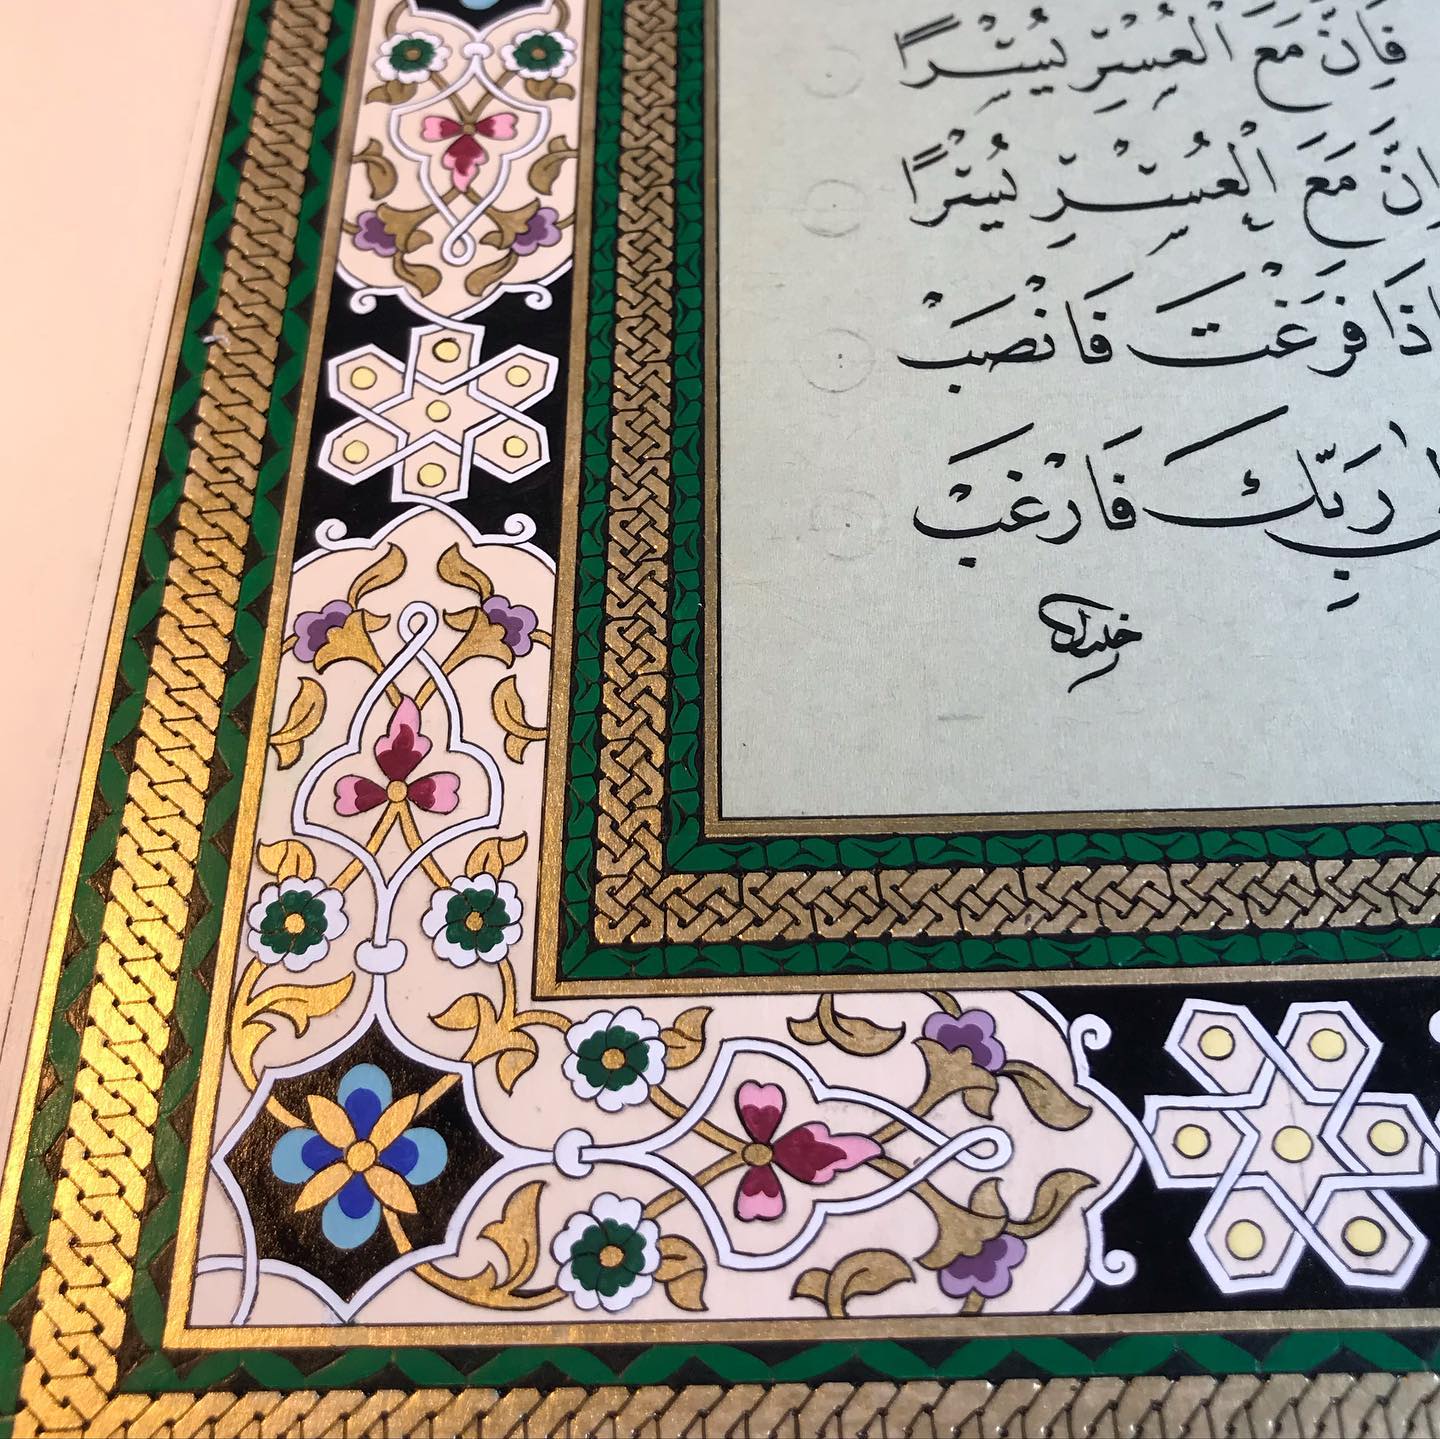 فَاِنَّ مَعَ الْعُسْرِ يُسْرًا
اِنَّ مَعَ الْعُسْرِ يُسْرًا
اِذَا فَرَغْتَ فَانْصَبْ
رَبِّكَ فَارْغَبْ